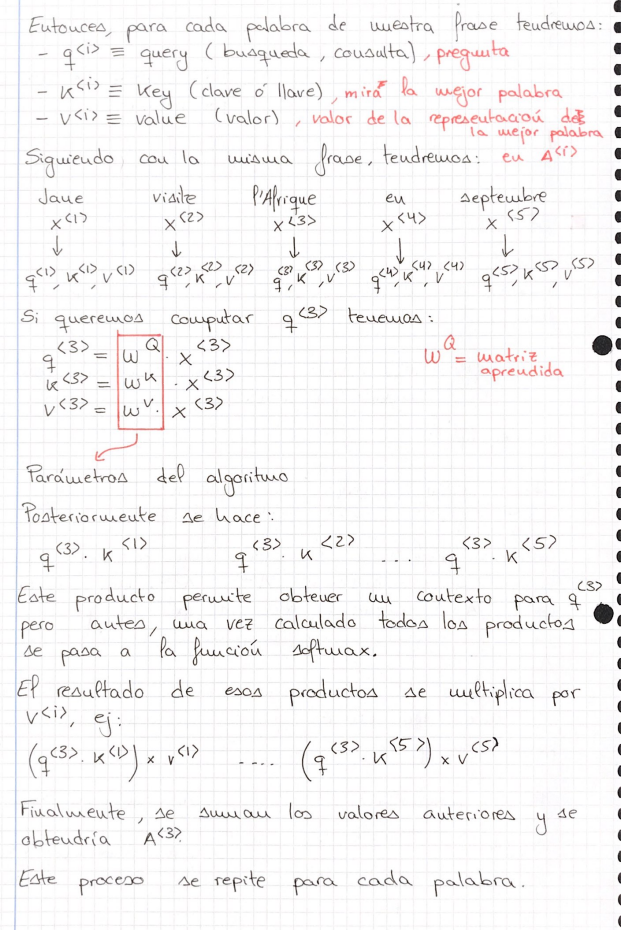 Entonces, para cada palabra de nuestra frase tendremos:
- q<i> ≡ query (busqueda, consulta), pregunta
- K<i> ≡ Key (clave ó llave), mira la mejor palabra
- V<i> ≡ value (valor), valor de la representación de
la mejor palabra
Siguiendo con la misma frase, tendremos: en A<i>
Jane visite l'Afrique en septembre
x<1> x<2> x<3> x<4> x<5>
↓ ↓ ↓ ↓ ↓
q<1>, K<1>, V<1> q<2>, K<2>, V<2> q<3>, K<3>, V<3> q<4>, K<4>, V<4> q<5>, K<5>, V<5>
Si queremos computar q<3> tenemos:
q<3> = W^Q · x<3> W^Q = matriz
K<3> = W^K · x<3> aprendida
V<3> = W^V · x<3>
Parámetros del algoritmo
Posteriormente se hace:
q<3> · K<1> q<3> · K<2> ... q<3> · K<5>
Este producto permite obtener un contexto para q<3>,
pero antes, una vez calculado todos los productos
se pasa a la función softmax.
El resultado de esos productos se multiplica por
V<i>, ej:
(q<3> · K<1>) x V<1> .... (q<3> · K<5>) x V<5>
Finalmente, se suman los valores anteriores y se
obtendría A<3>.
Este proceso se repite para cada palabra.